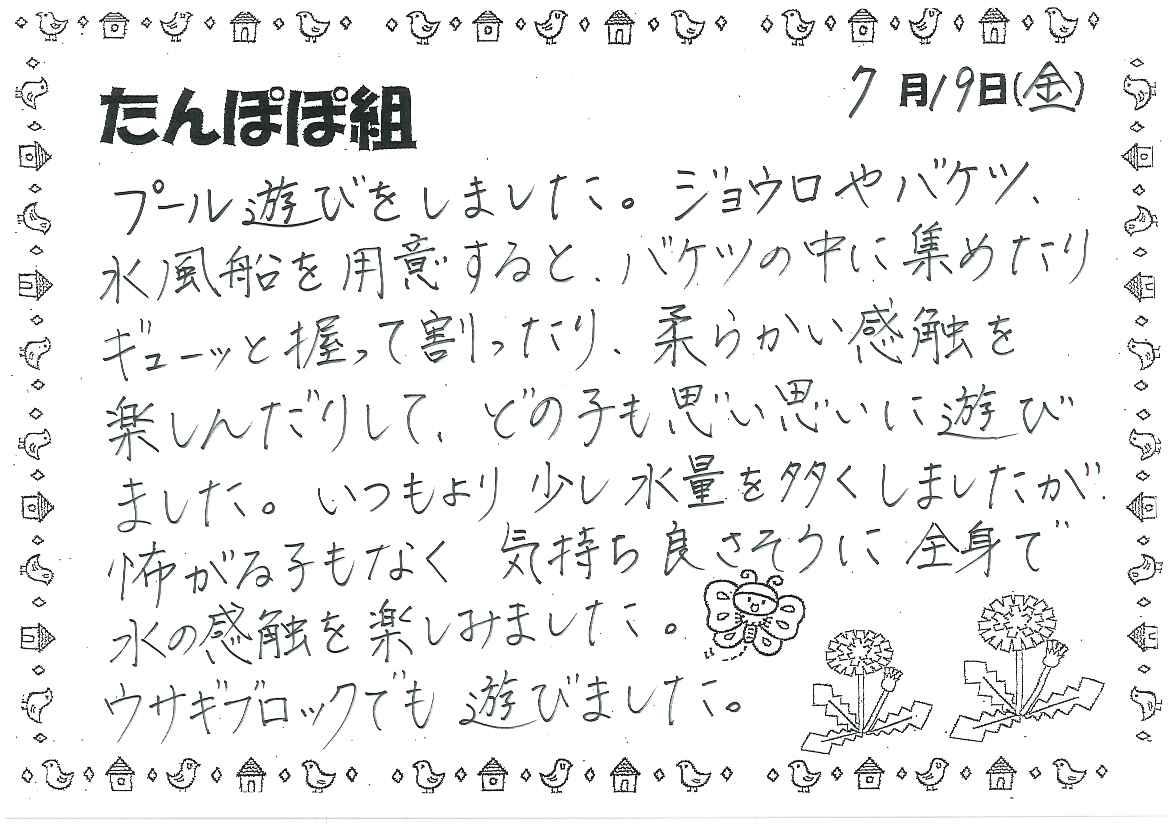 7月19日(金)
たんぽぽ組
プール遊びをしました。ジョウロやバケツ、
水風船を用意すると、バケツの中に集めたり
ギューッと握って割ったり、柔らかい感触を
楽しんだりして、どの子も思い思いに遊び
ました。いつもより少し水量を多くしましたが
怖がる子もなく 気持ち良さそうに全身で
水の感触を楽しみました。
ウサギブロックでも遊びました。